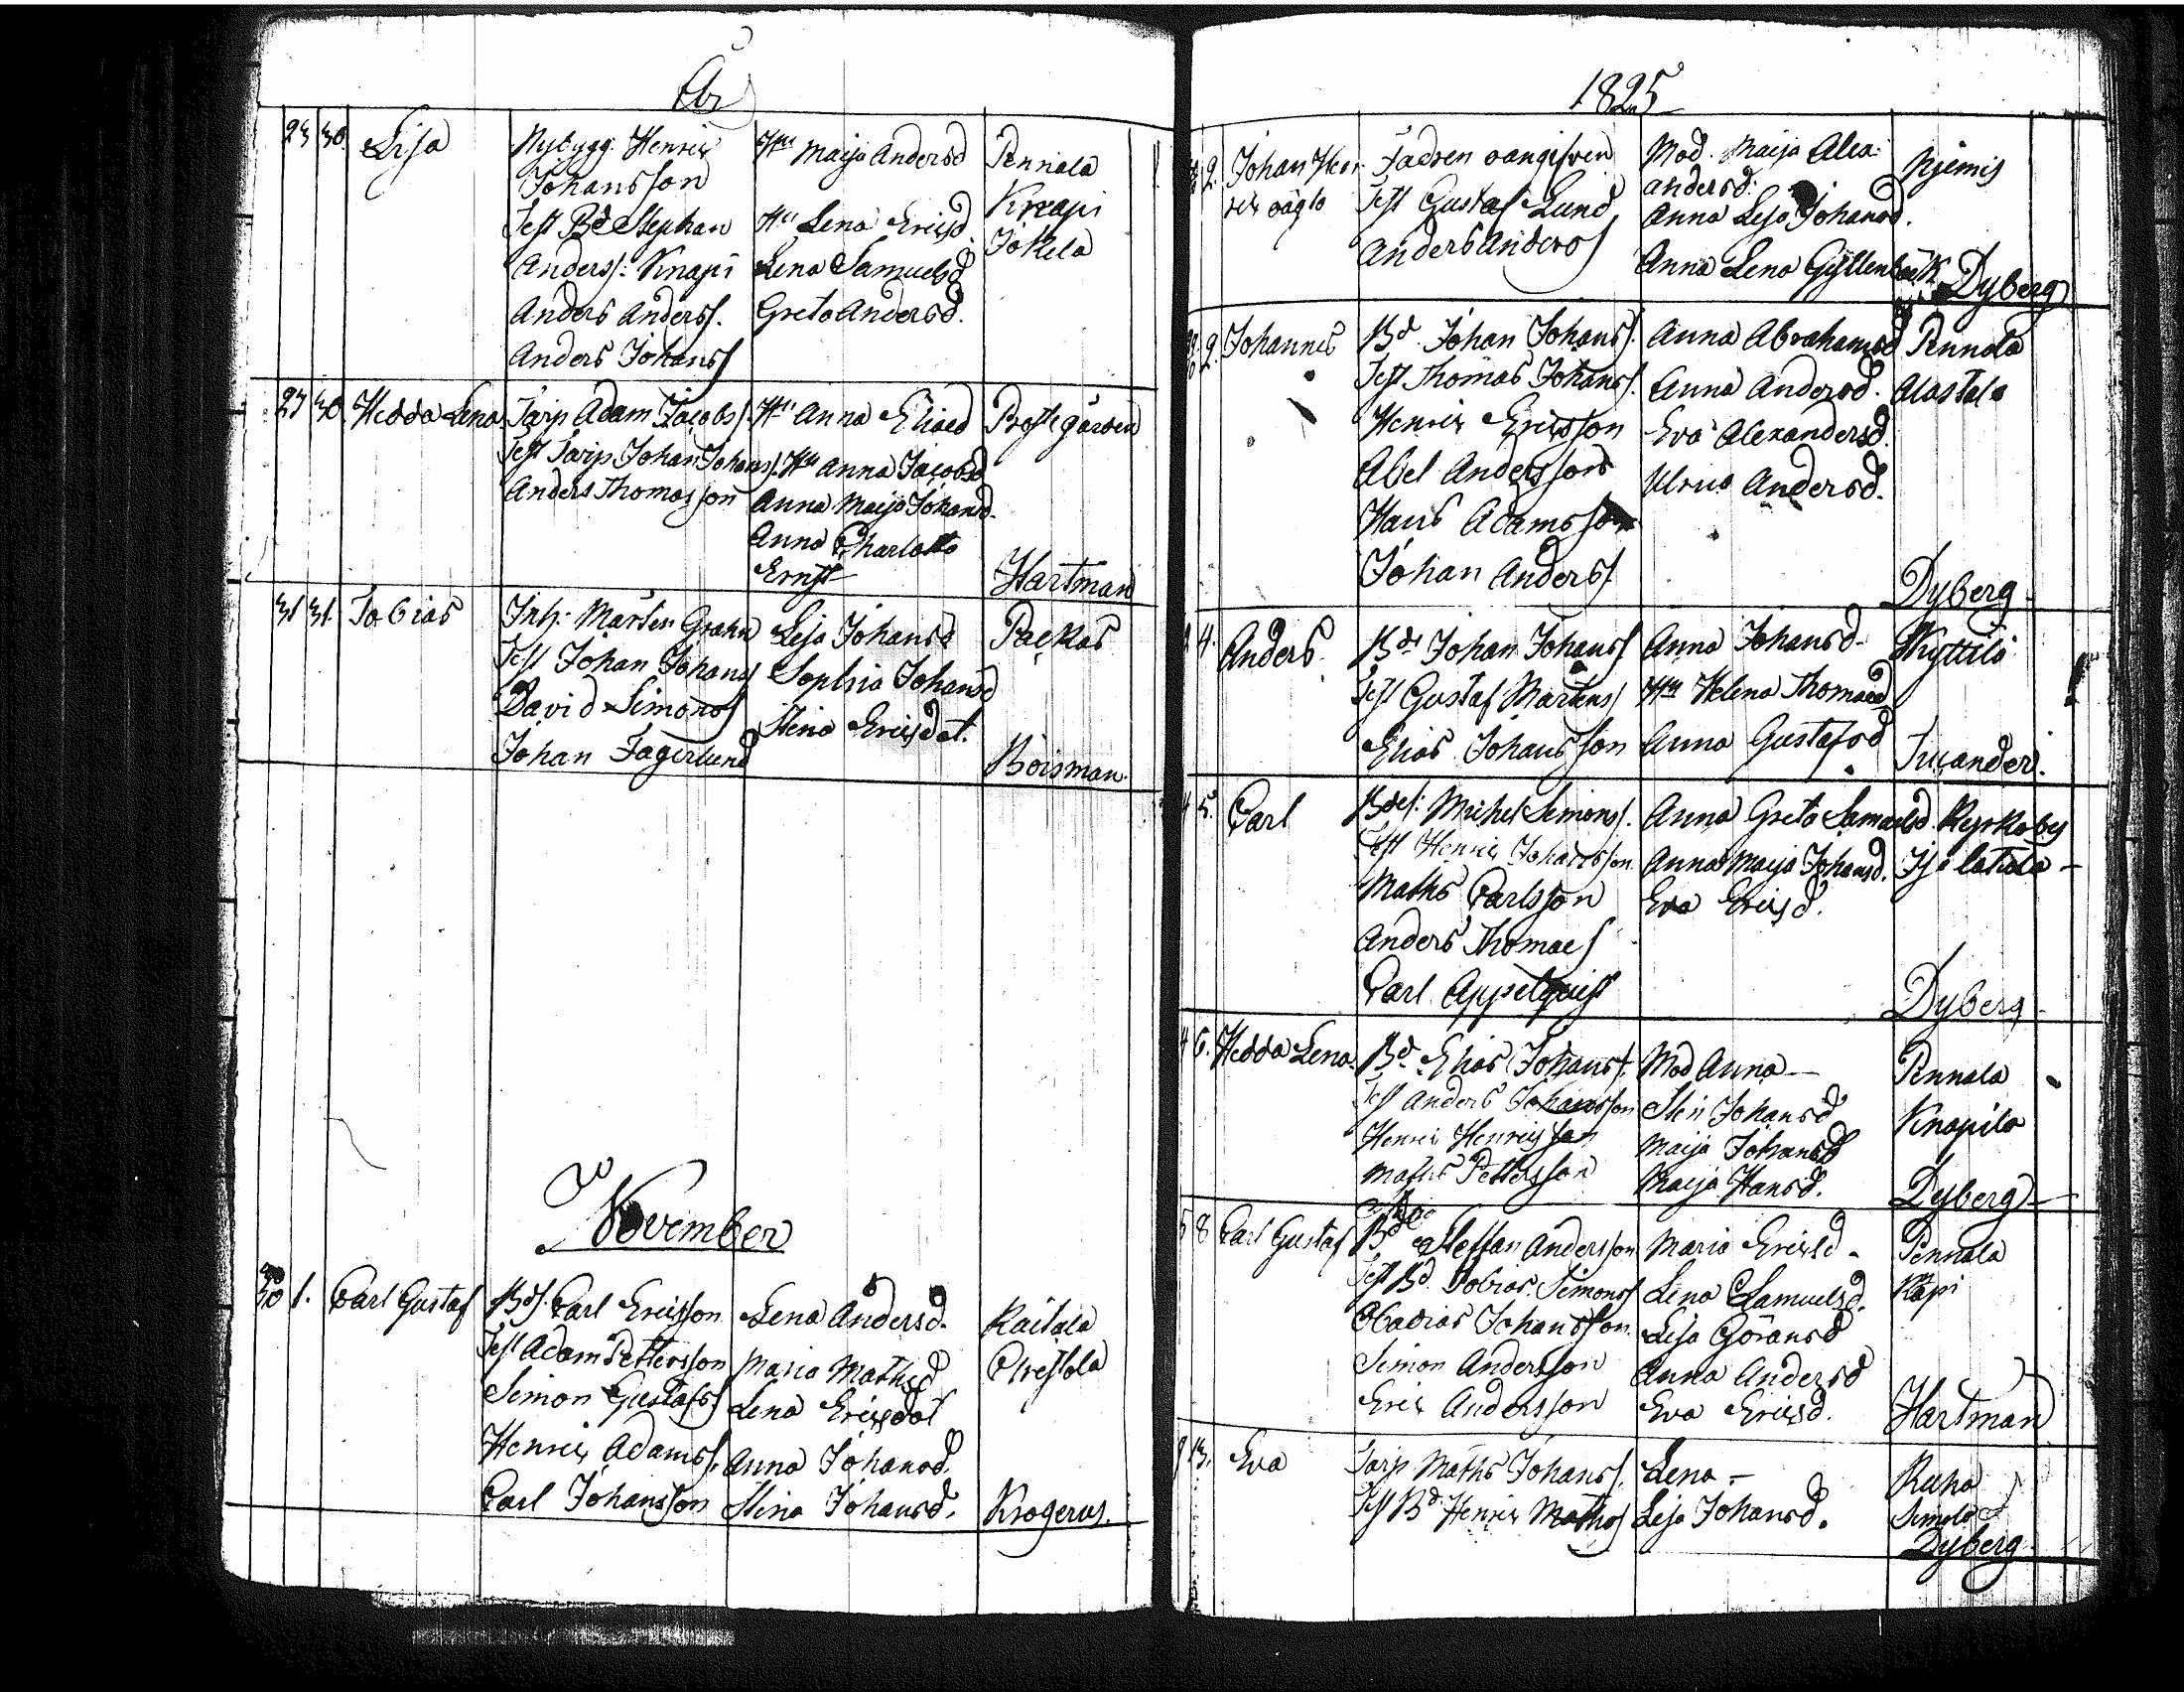 År
23 30 Lisa Nybygg. Henric Hu Maija Andersd Pennala
Johansson Knapi
Test Bd Stephan Hu Lena Ericsd Jokela
Anderss: Knapi Lena Samuelsd
Anders Anderss. Greta Andersd.
Anders Johanss
27 30. Hedda Lena Torp Adam Jacobss Hu Anna Eliaed Prostgården
Test Torp Johan Johanss. Hu Anna Jacobsd
Anders Thomasson Anna Maija Johansd.
Anna Charlotta
Ernst Hartman
31 31. Tobias Inh: Mårten Grahn Lisa Johansd Packas
Test Johan Johanss Sophia Johansd
David Simonss Stina Ericsdot.
Johan Fagerlund Boisman.
November
30 1. Carl Gustaf Bds. Carl Ericsson Lena Andersd. Raitala
Test Adam Pettersson Maria Mathsd
Simon Gustafss Lena Ericsdot
Henric Adamss. Anna Johansd.
Carl Johansson Stina Johansd. Krogerus.
1825
2. Johan Hen- Fadren oangifven Mod. Maija Alex- Njemis
ric oägta Test Gustaf Lund andersd:
Anders Anderss Anna Lisa Johansd.
Anna Lena Gyllenbäck Dyberg
2. Johannes Bd. Johan Johanss. Anna Abrahamsd Pennala
Test Thomas Johanss. Anna Andersd. Alastalo
Henric Ericsson Eva Alexandersd.
Abel Andersson Ulrica Andersd.
Hans Adamsson
Johan Anderss Dyberg
4. Anders Bd Johan Johanss Anna Johansd. Kyttilä
Test Gustaf Martenss Hu Helena Thomaed
Elias Johansson Anna Gustafsd Jucander.
4 5. Carl Bdes: Michel Simonss. Anna Greta Samuelsd. Kyrkoby
Test Henric Johansson Anna Maija Johansd.
Maths Carlsson Eva Ericsd.
Anders Thomaes
Carl Appelquist Dyberg
4 6. Hedda Lena Bd. Elias Johanss. Mod Anna — Pennala
Test Anders Johansson Stin Johansd Knapila
Henric Henricsson Maija Johansd
Maths Pettersson Maija Hansd. Dyberg
5 8 Carl Gustaf Bd Steffan Andersson Maria Ericsd. Pennala
Test Bd. Tobias Simonss Lena Samuelsd. Knapi
Obadias Johansson. Lisa Göransd
Simon Andersson Anna Andersd
Eric Andersson Eva Ericsd. Hartman
9 13. Eva Torp Maths Johanss. Lena — Ruha
Test Bd. Henric Mathss Lisa Johansd. Simola
Dyberg